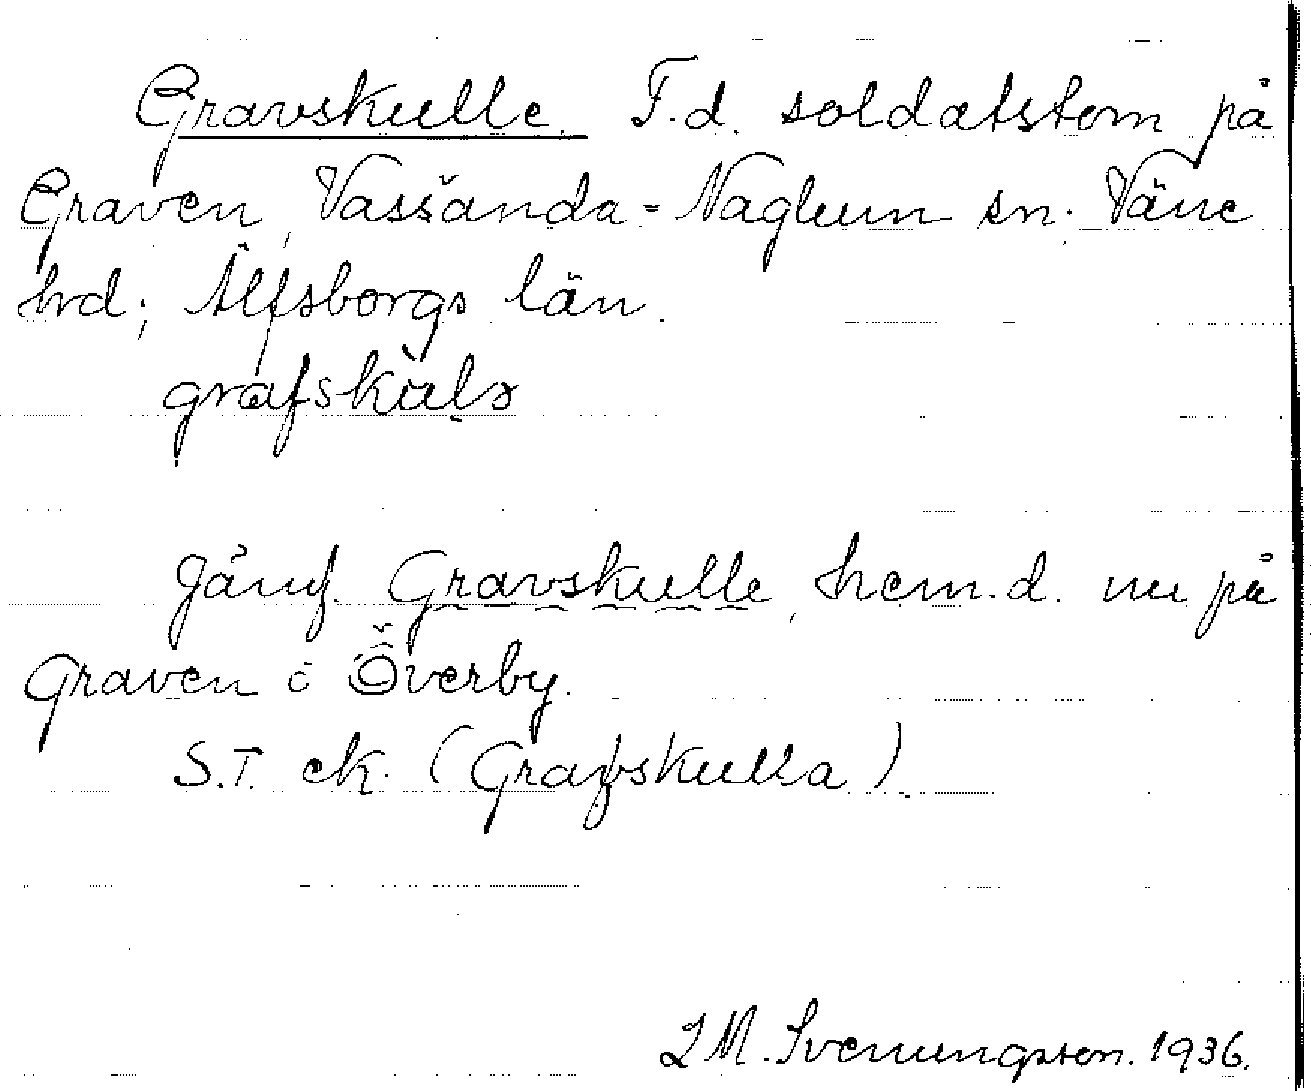 Gravskulle. F.d. soldatstom på
Graven, Vassända-Naglum sn. Väne
hrd; Älfsborgs län.
grafskulə
Jämf. Gravskulle, hem.d. nu på
Graven i Överby.
S.T. ek. (Grafskulla).
I M. Svenungsson. 1936.